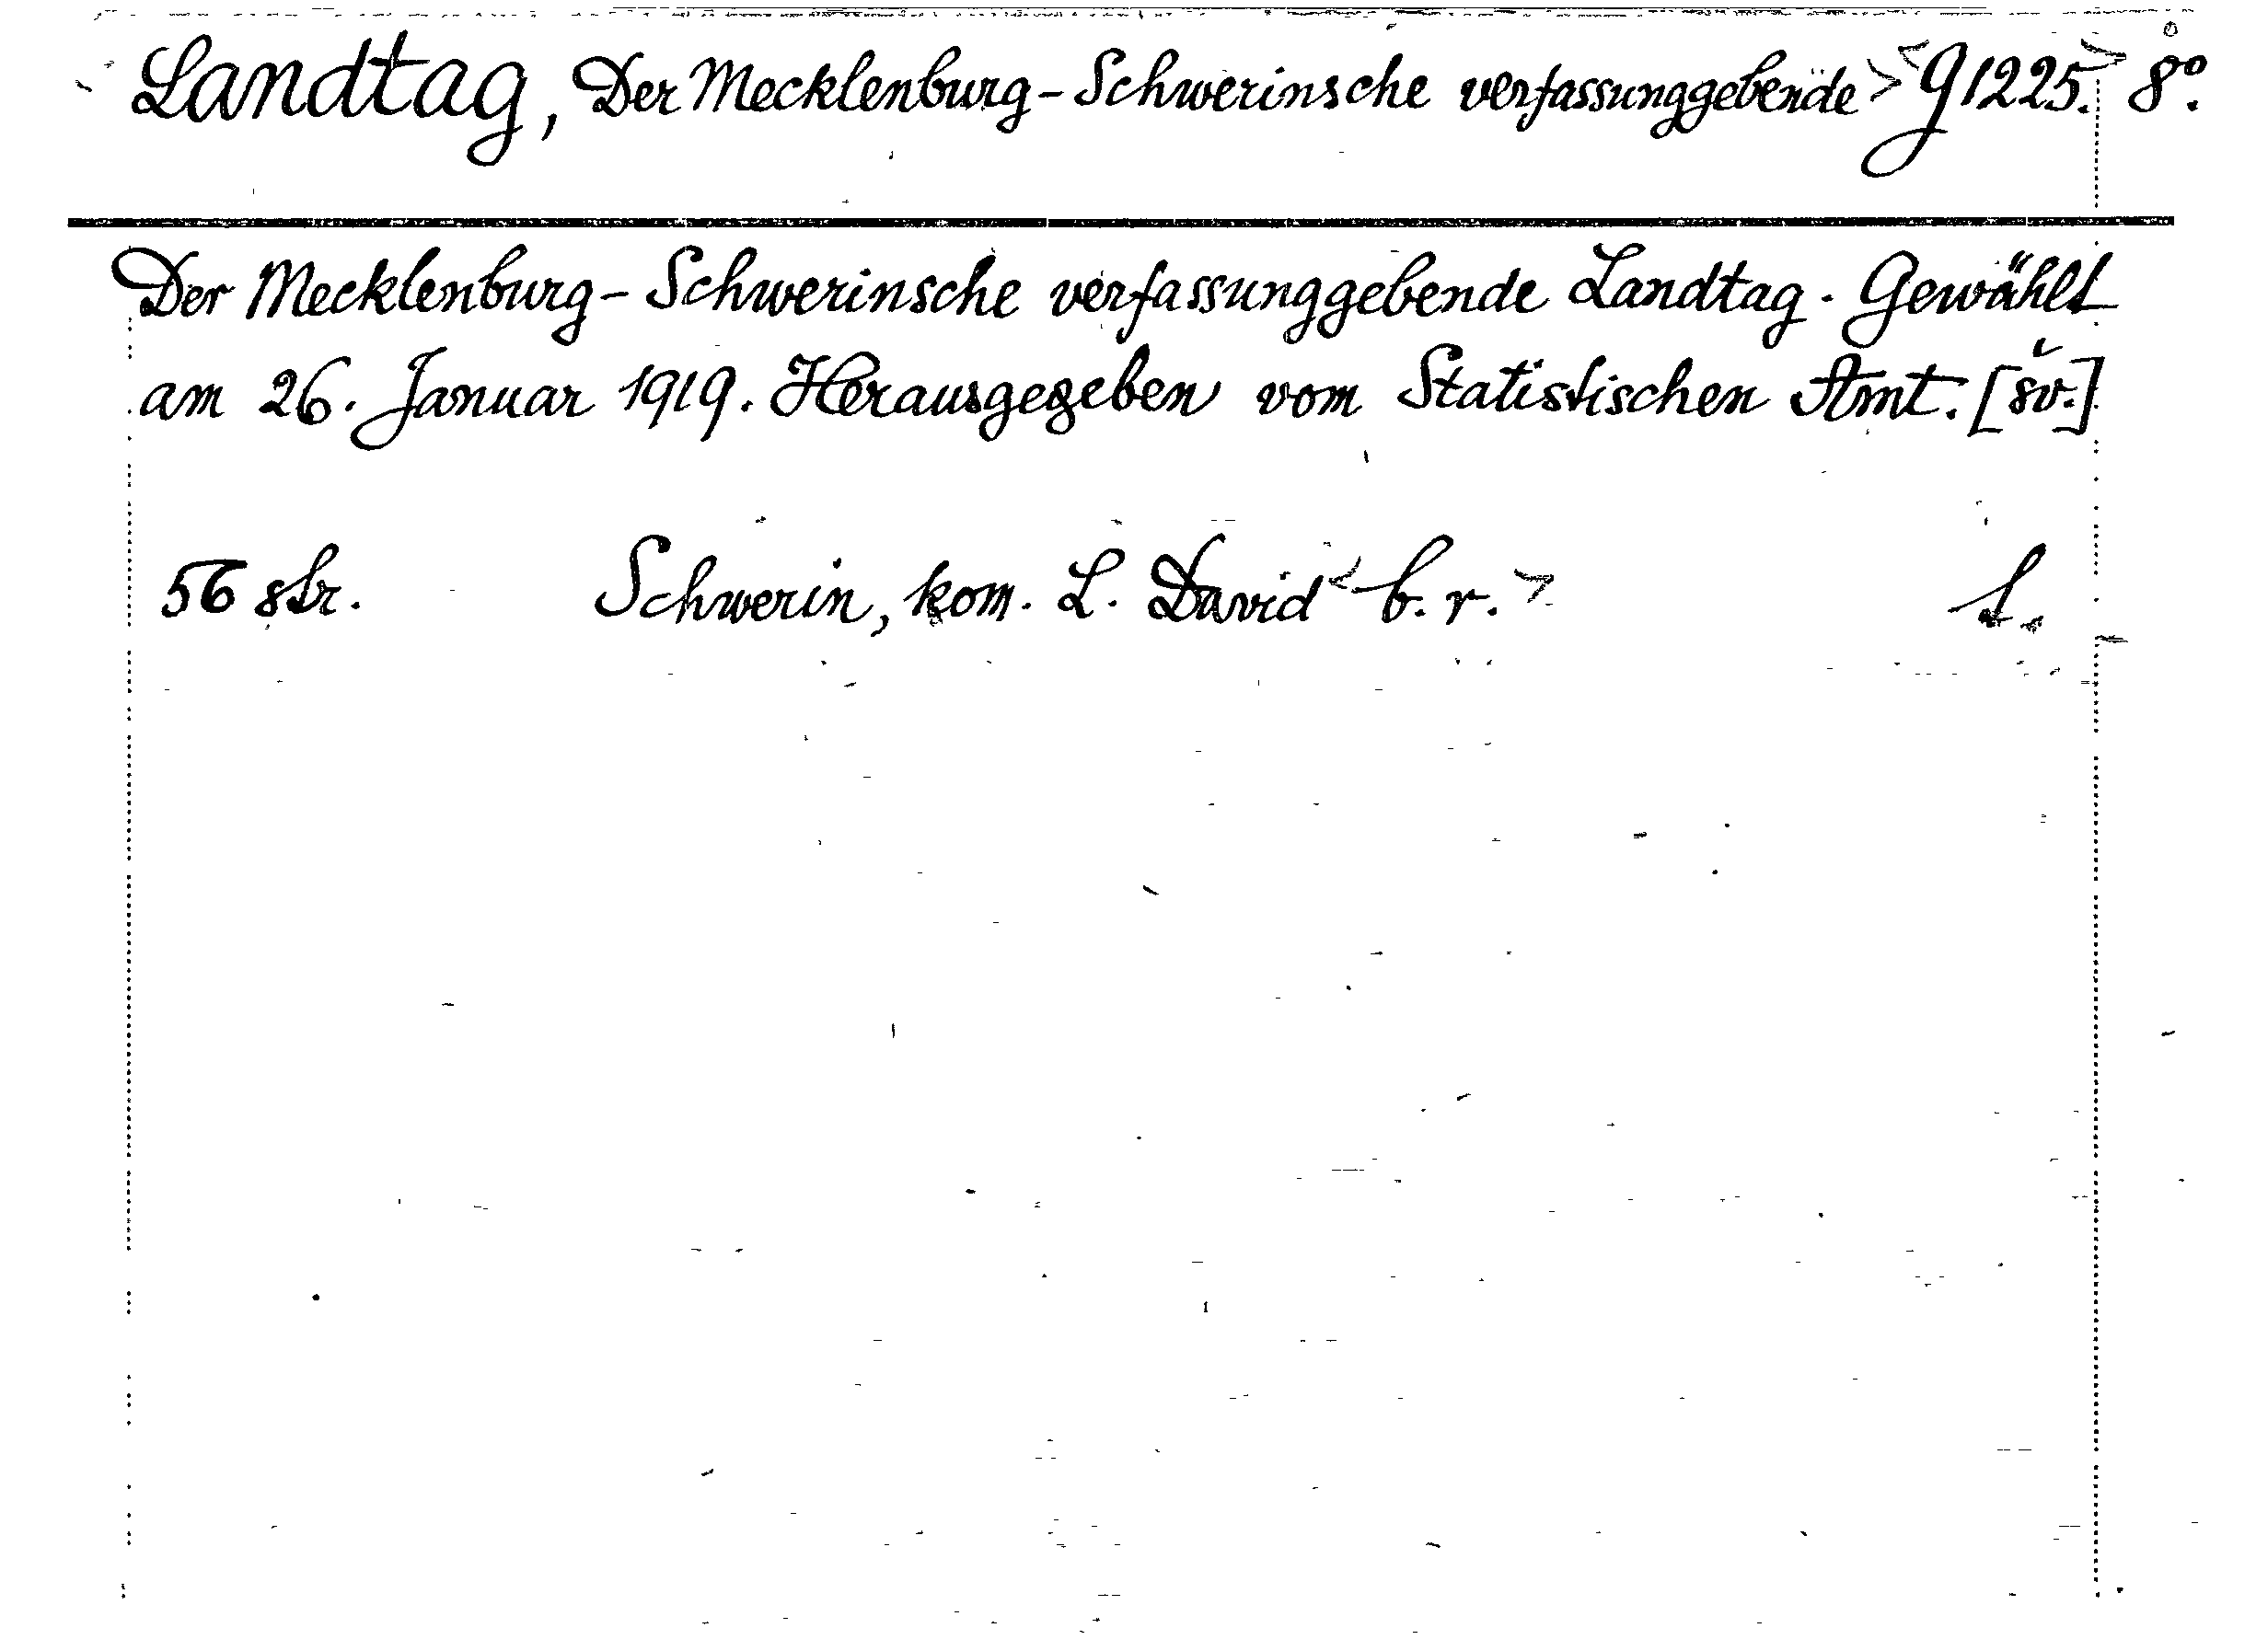 Landtag, Der Mecklenburg-Schwerinsche verfassunggebende > <g 1225.> 8°.
Der Mecklenburg-Schwerinsche verfassunggebende Landtag. Gewählt
am 26. Januar 1919. Herausgegeben vom Statistischen Amt. [šv.]
56 str. Schwerin, kom. L. David <b. r.> 1.